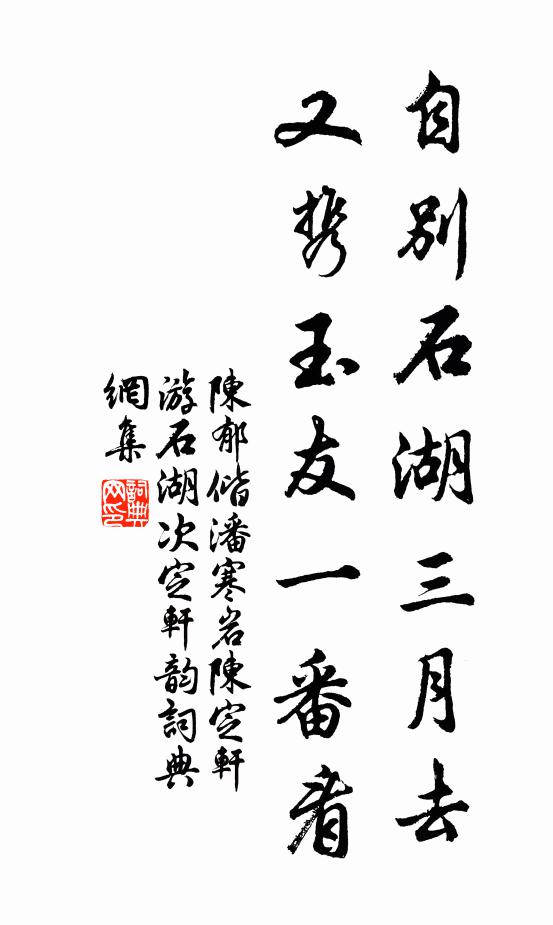 自別石湖三月去
又携玉友一番看
陳郁偕潘寒岩陳定軒
游石湖次定軒韵詞典
網集
詞典網印